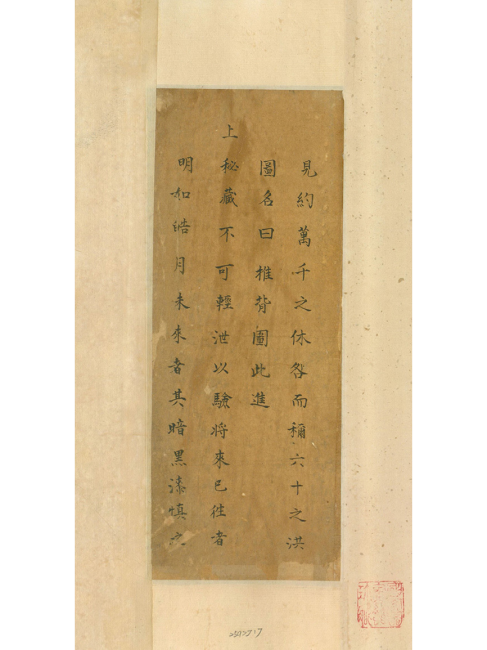 見約萬千之休咎而稱六十之洪
圖名曰推背圖此進
上秘藏不可輕泄以驗將來已徃者
明如皓月未來者其暗黑漆慎